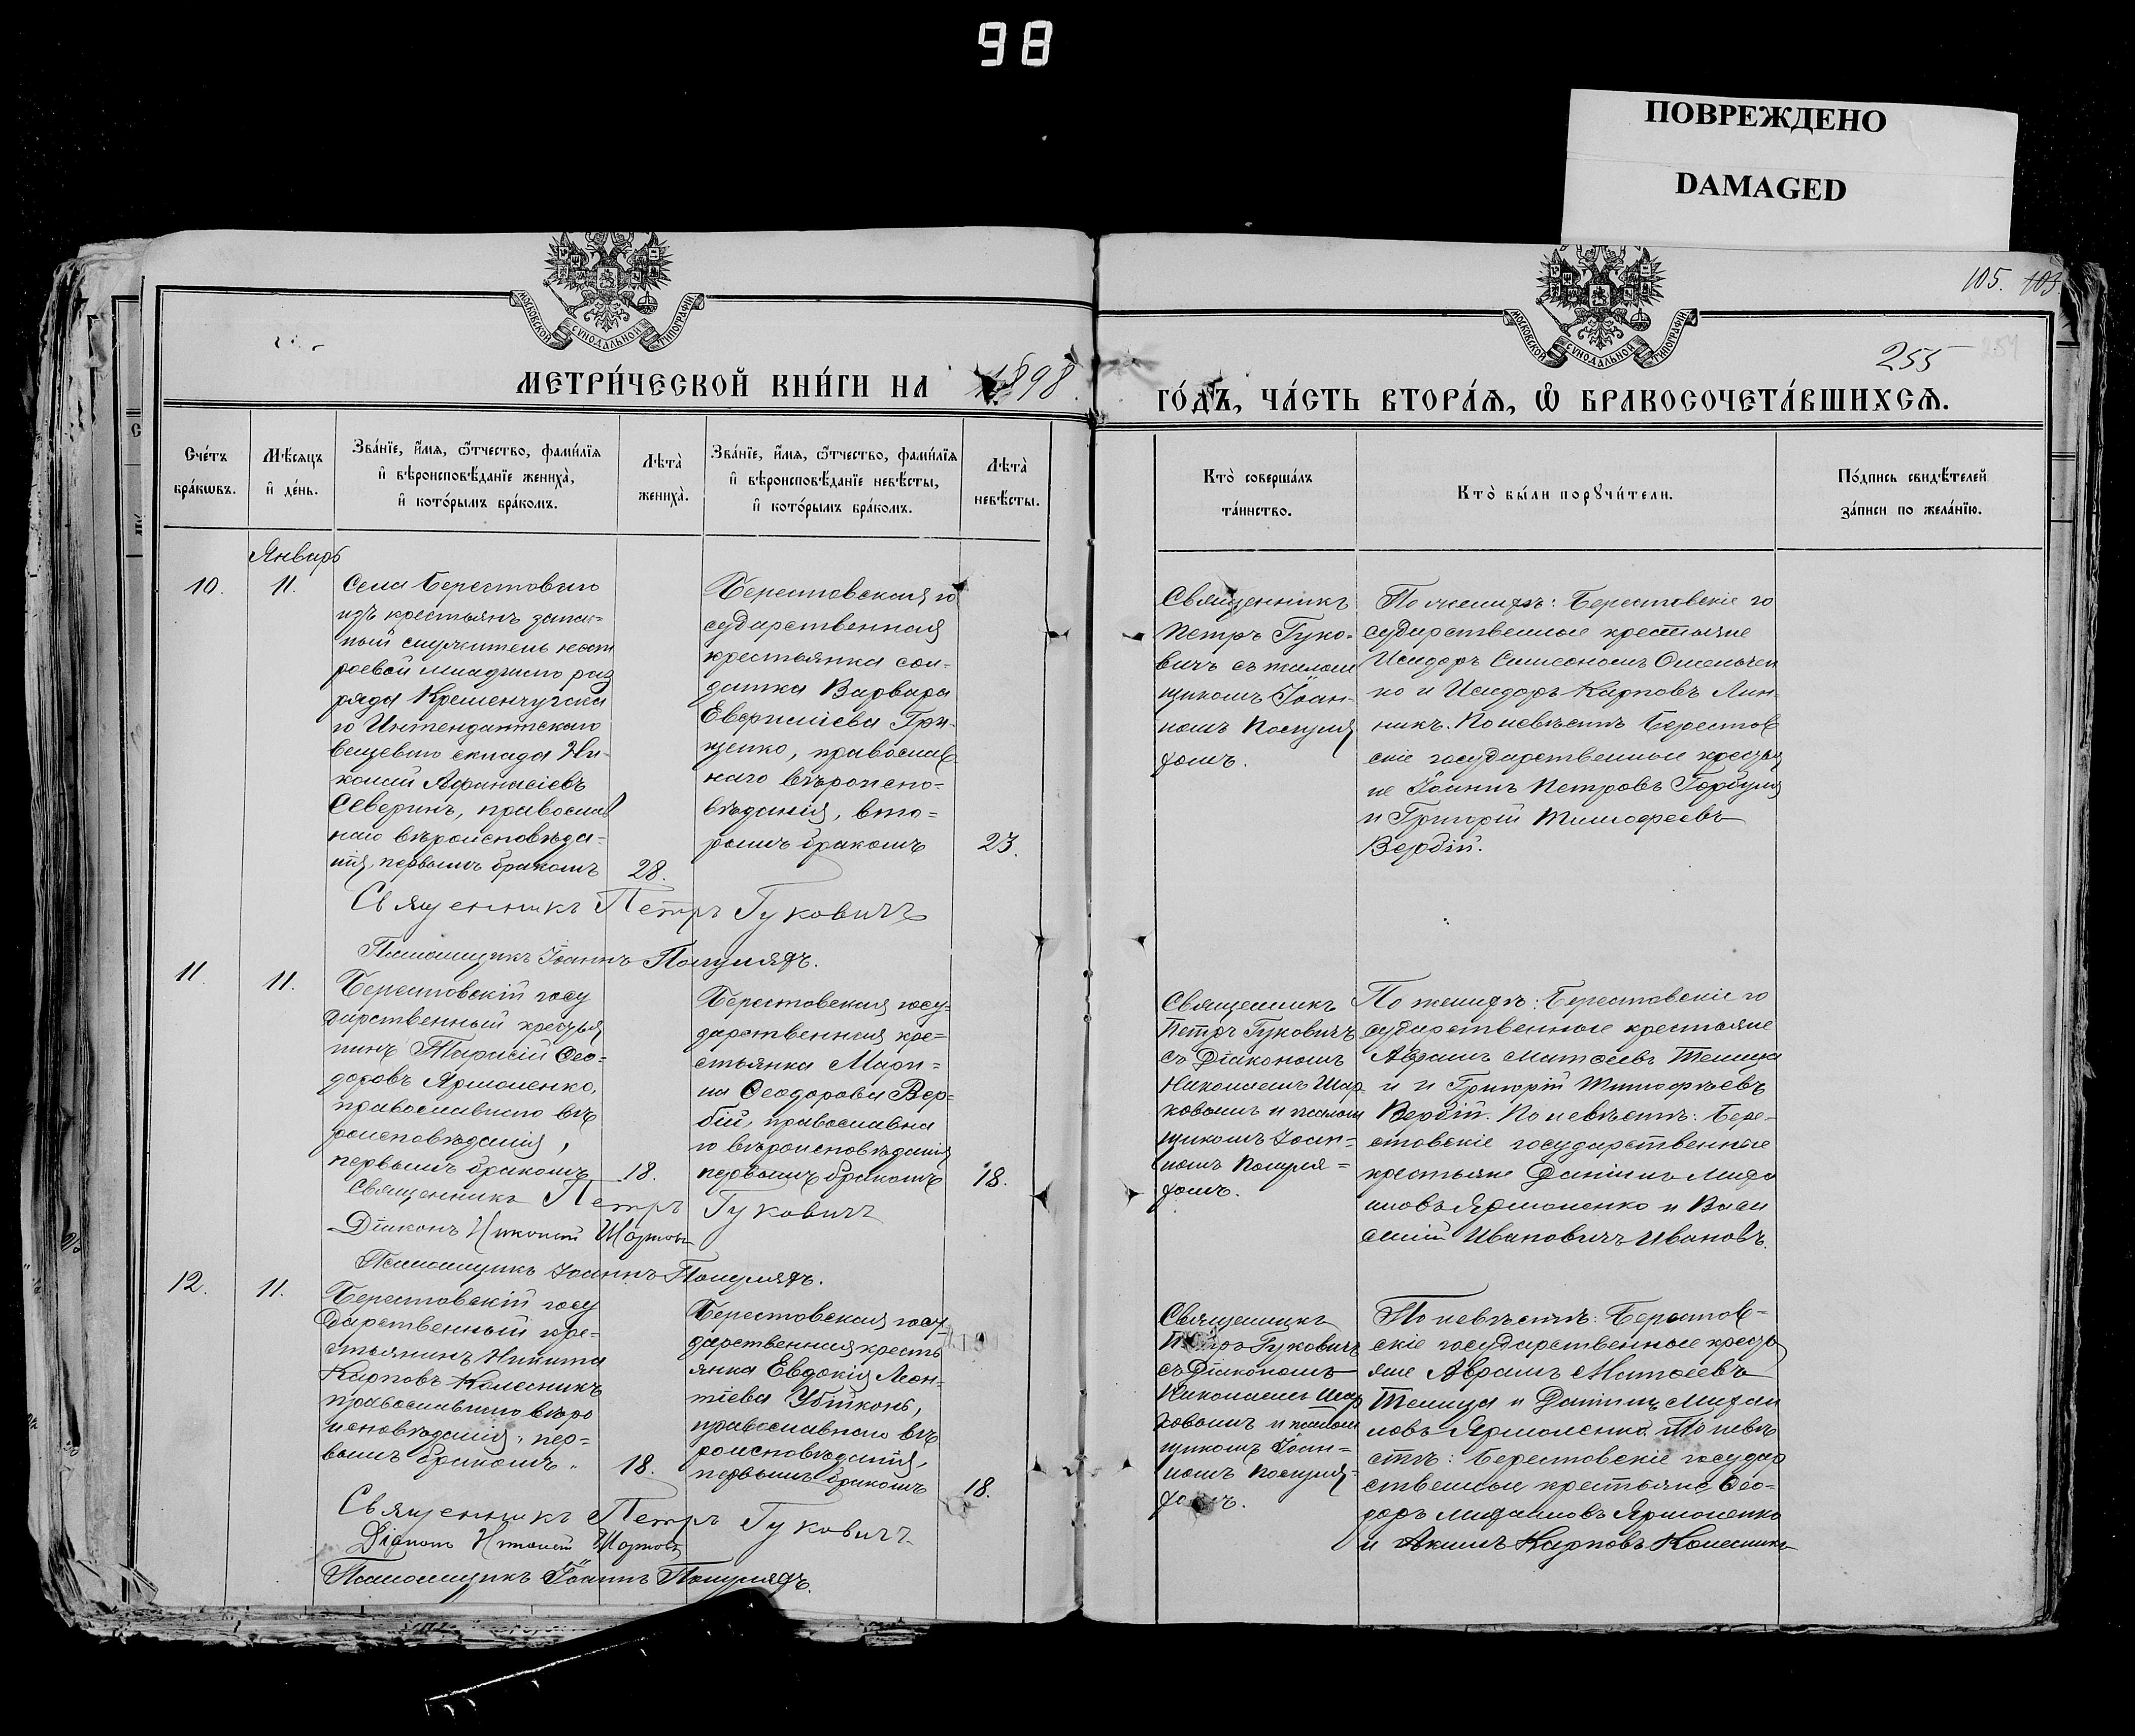 98
ПОВРЕЖДЕНО
DAMAGED
105. 103
255
МОСКОВСКОЙ СУНОДАЛЬНОЙ ТИПОГРАФІИ
МОСКОВСКОЙ СУНОДАЛЬНОЙ ТИПОГРАФІИ
МЕТРИ́ЧЕСКОЙ КНИ́ГИ НА 1898
ГО́ДЪ, ЧА́СТЬ ВТОРА́Ѧ, Ѽ БРАКОСОЧЕТА́ВШИХСѦ.
Сче́тъ
бра́кωвъ.
Мѣ́сяцъ
и҆ де́нь.
Зва́нїе, и҆́мѧ, ѻ҆́тчество, фами́лїѧ
и҆ вѣроисповѣ́данїе жениха̀,
и҆ кото́рымъ бра́комъ.
Лѣта̀
жениха̀.
Зва́нїе, и҆́мѧ, ѻ҆́тчество, фами́лїѧ
и҆ вѣроисповѣ́данїе невѣ́сты,
и҆ кото́рымъ бра́комъ.
Лѣта̀
невѣ́сты.
Кто̀ соверша́лъ
та́инство.
Кто̀ бы́ли порꙋчи́тели.
По́дпись свидѣ́телей
за́писи по жела́нїю.
Январь
10.
11.
Села Берестоваго
изъ крестьянъ запас=
ный служитель нест
роевой младшаго раз
ряда Кременчугска
го Интендантскаго
вещеваго склада Ни-
колай Афанасіевъ
Северинъ, православ
наго вѣроисповѣда-
нія, первымъ бракомъ
28.
Берестовская го
сударственная
крестьянка сол-
датка Варвара
Гри-
ценко, православ
наго вѣроиспо-
вѣданія, вто=
рымъ бракомъ
23.
Священникъ
Петръ Гуко-
вичъ съ псалом
щикомъ Іоан-
номъ
По женихѣ: Берестовскіе го
сударственные крестьяне
Исидоръ Симеоновъ Омельчен
ко и Исидоръ Карповъ Лин-
никъ. По невѣстѣ Берестов
скіе государственные крестья
не Іоаннъ Петровъ Горбуля
и Григорій Тимофеевъ
Вербій.
Священникъ Петръ Гуковичъ
Псаломщикъ Іоаннъ
11.
11.
Берестовскій госу
дарственный крестья
нинъ Тарасій Ѳео-
доровъ Ярмоленко,
православнаго вѣ
роисповѣданія,
первымъ бракомъ
18.
Берестовская госу-
дарственная кре=
стьянка Мари=
на Ѳеодорова Вер-
бій, православна
го вѣроисповѣданія
первымъ бракомъ
18.
Священникъ
Петръ Гуковичъ
съ Діакономъ
Николаемъ
и псалом
щикомъ Іоан=
номъ
По женихѣ: Берестовскіе го
сударственные крестьяне
Аврамъ Матѳеевъ Телица
и Григорій Тимофѣевъ
Вербій. По невѣстѣ: Бере-
стовскіе государственные
крестьяне Даніилъ Михаи
ловъ Ярмоленко и Васи
силій Ивановичъ Ивановъ.
Священникъ Петръ Гуковичъ
Діаконъ Николай
Псаломщикъ Іоаннъ
12.
11.
Берестовскій госу
дарственный кре=
стьянинъ Никита
Карповъ Колесникъ
православнаго вѣро
исповѣданія, пер=
вымъ бракомъ.
18.
Берестовская госу
дарственная кресть
янка Евдокія Леон-
тіева Убійконь,
православнаго вѣ
роисповѣданія,
первымъ бракомъ
18.
Священникъ
Петръ Гуковичъ
съ Діакономъ
Николаемъ
и псалом
щикомъ Іоан=
номъ
По невѣстѣ: Берестов=
скіе государственные кресть
яне Аврамъ Матѳеевъ
Телица и Даніилъ Михаи
ловъ Ярмоленко. По невѣ
стѣ: Берестовскіе государ
ственные крестьяне Ѳео-
доръ Михаиловъ Ярмоленко
и Акимъ Карповъ Колесникъ
Священникъ Петръ Гуковичъ
Діаконъ Николай
Псаломщикъ Іоаннъ